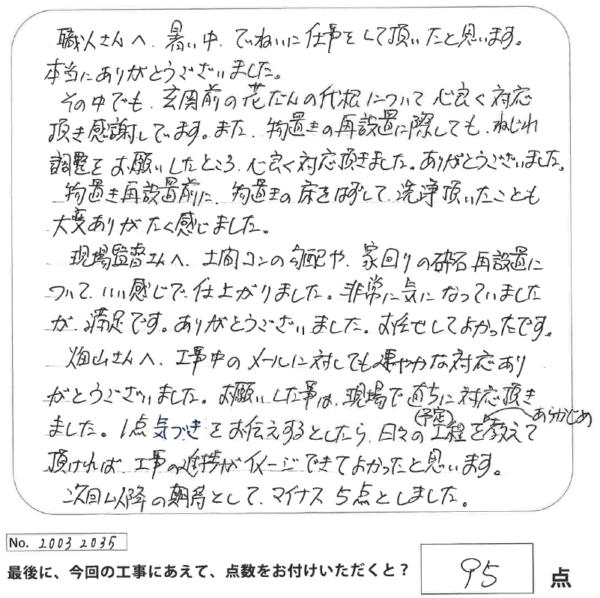 職人さんへ、暑い中、ていねいに仕事をして頂いたと思います。
本当にありがとうございました。
その中でも、玄関前の花だんの伐根について心良く対応
頂き感謝しています。また、物置きの再設置に際しても、ねじれ
調整をお願いしたところ、心良く対応頂きました。ありがとうございました。
物置き再設置前に、物置きの床をはずして、洗浄頂いたことも
大変ありがたく感じました。
現場監督さんへ、土間コンの勾配や、家回りの砕石再設置に
ついて、いい感じで仕上がりました。非常に気になっていました
が、満足です。ありがとうございました。お任せしてよかったです。
畑山さんへ、工事中のメールに対しても速やかな対応あり
がとうございました。お願いした事は、現場で直ちに対応頂き
ました。1点気づきをお伝えするとしたら、日々の(予定)工程をあらかじめ教えて
頂ければ、工事の進捗がイメージできてよかったと思います。
次回以降の期待として、マイナス5点としました。
No. 20032035
最後に、今回の工事にあえて、点数をお付けいただくと? 95 点